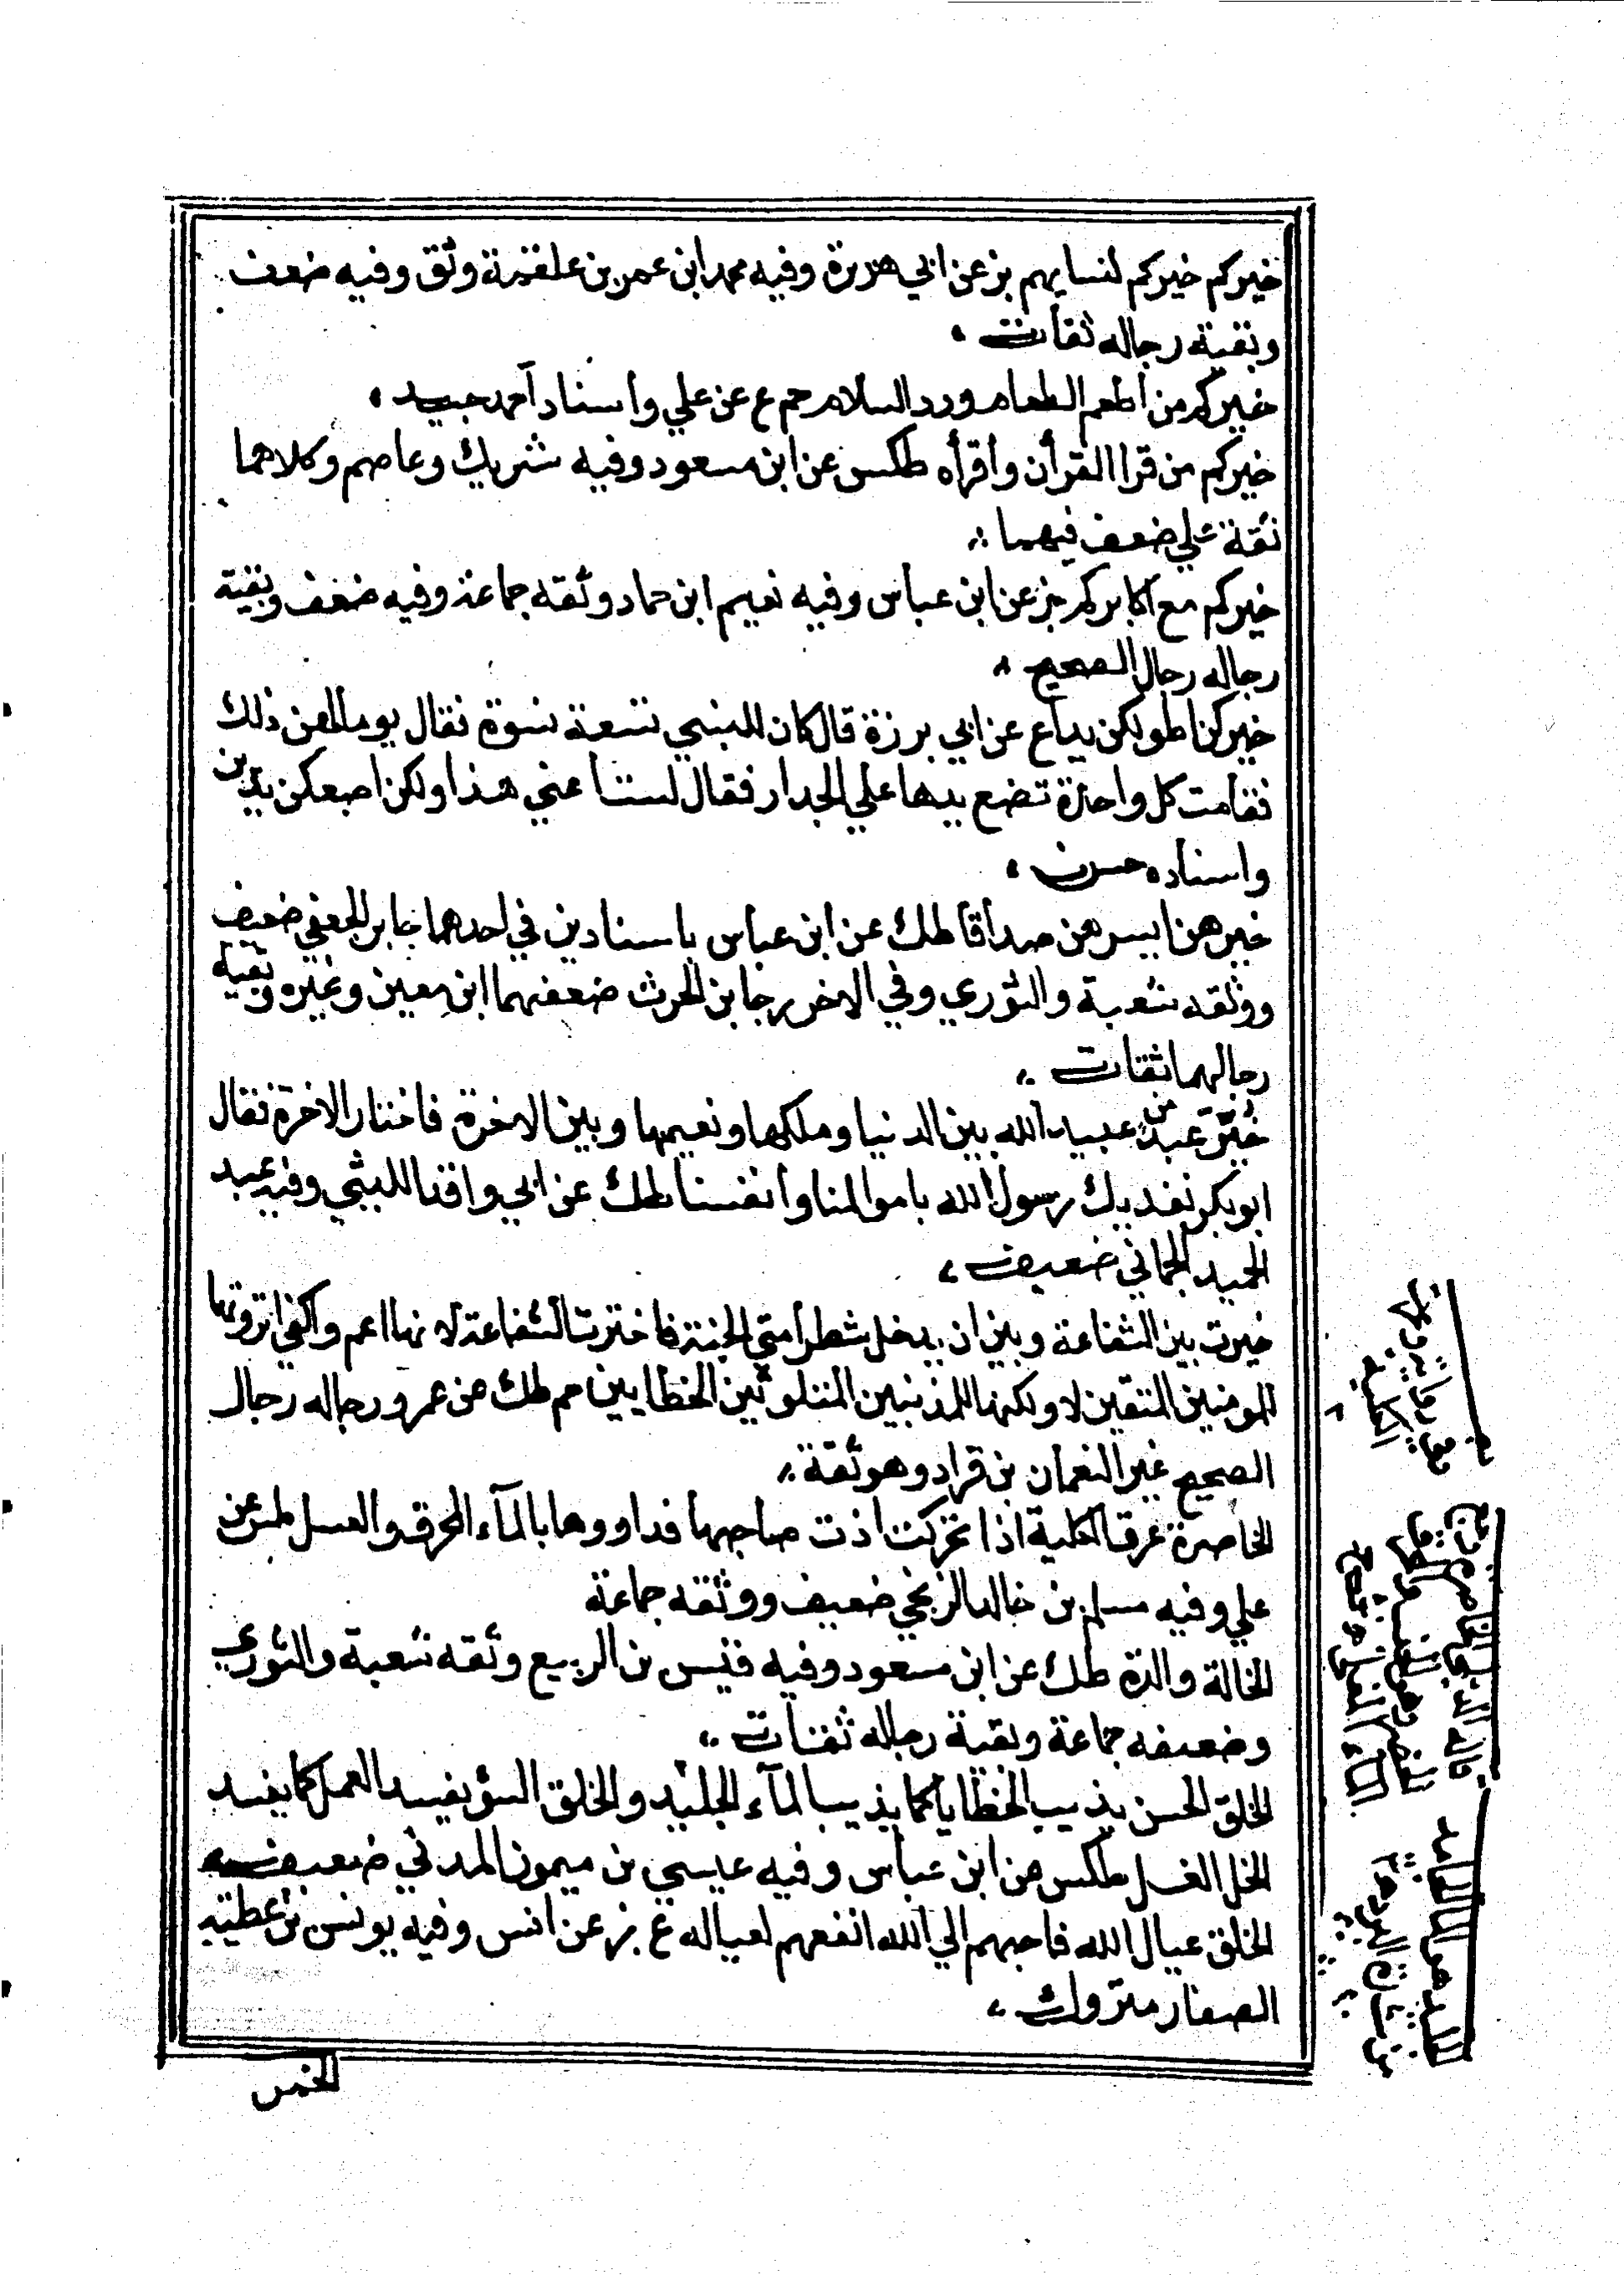 خيركم خيركم لنسايهم بز عن ابي هريرة وفيه محمد ابن عمر بن علقمة وثق وفيه ضعف
وبقية رجاله ثقات
خيركم من أطعم الطعام ورد السلام حم ع عن علي وأسناد أحمد جيد
خيركم من قرا القرأن وأقرأه طكس عن ابن مسعود وفيه شريك وعاصم وكلاهما
ثقة علي ضعف فيهما
خيركم مع اكابركم بز عن ابن عباس وفيه نعيم ابن حماد وثقه جماعة وفيه ضعف وبقية
رجاله رجال الصحيح
خيركن اطولكن يدا ع عن ابي برزة قال كان للنبي تسعة نسوة فقال يوما لهن ذلك
فقامت كل واحدة تضع يدها علي الجدار فقال لست أعني هذا ولكن اصبعكن يدين
واسناده حسن
خيرهن ايسرهن صداقا طك عن ابن عباس باسنادين في احدهما جابر الجعفي ضعيف
ووثقه شعبة والثوري وفي الاخر رجا بن الحرث ضعفهما ابن معين وغيره وبقية
رجالهما ثقات
خير عبد من عبيد الله بين الدنيا وملكها ونعيمها وبين الاخرة فاختار الاخرة فقال
ابو بكر نفديك رسول الله باموالنا وأنفسنا طك عن ابي واقد الليثي وفيه عبد
الحميد الحماني ضعيف
خيرت بين الشفاعة وبين ان يدخل شطر أمتي الجنة فاخترت الشفاعة لانها اعم واكفي اترونها
للمومنين المتقين لا ولكنها للمذنبين المتلوثين الخطايين حم طك عن عمر ورجاله رجال
الصحيح غير النعمان بن قراد وهو ثقة
الخاصرة عرق الكلية اذا تحركت اذت صاحبها فداووها بالمآء المحرق والعسل طس عن
علي وفيه مسلم بن خالد الزنجي ضعيف ووثقه جماعة
الخالة والدة طك عن ابن مسعود وفيه قيس بن الربيع وثقه شعبة والثوري
وضعفه جماعة وبقية رجاله ثقات
الخلق الحسن يذيب الخطايا كما يذيب المآء الجليد والخلق السؤ يفسد العمل كما يفسد
الخل العسل طكس عن ابن عباس وفيه عيسي بن ميمون المدني ضعيف
الخلق عيال الله فاحبهم الي الله انفعهم لعياله ع بز عن انس وفيه يونس بن عطية
الصفار متروك
الخمس